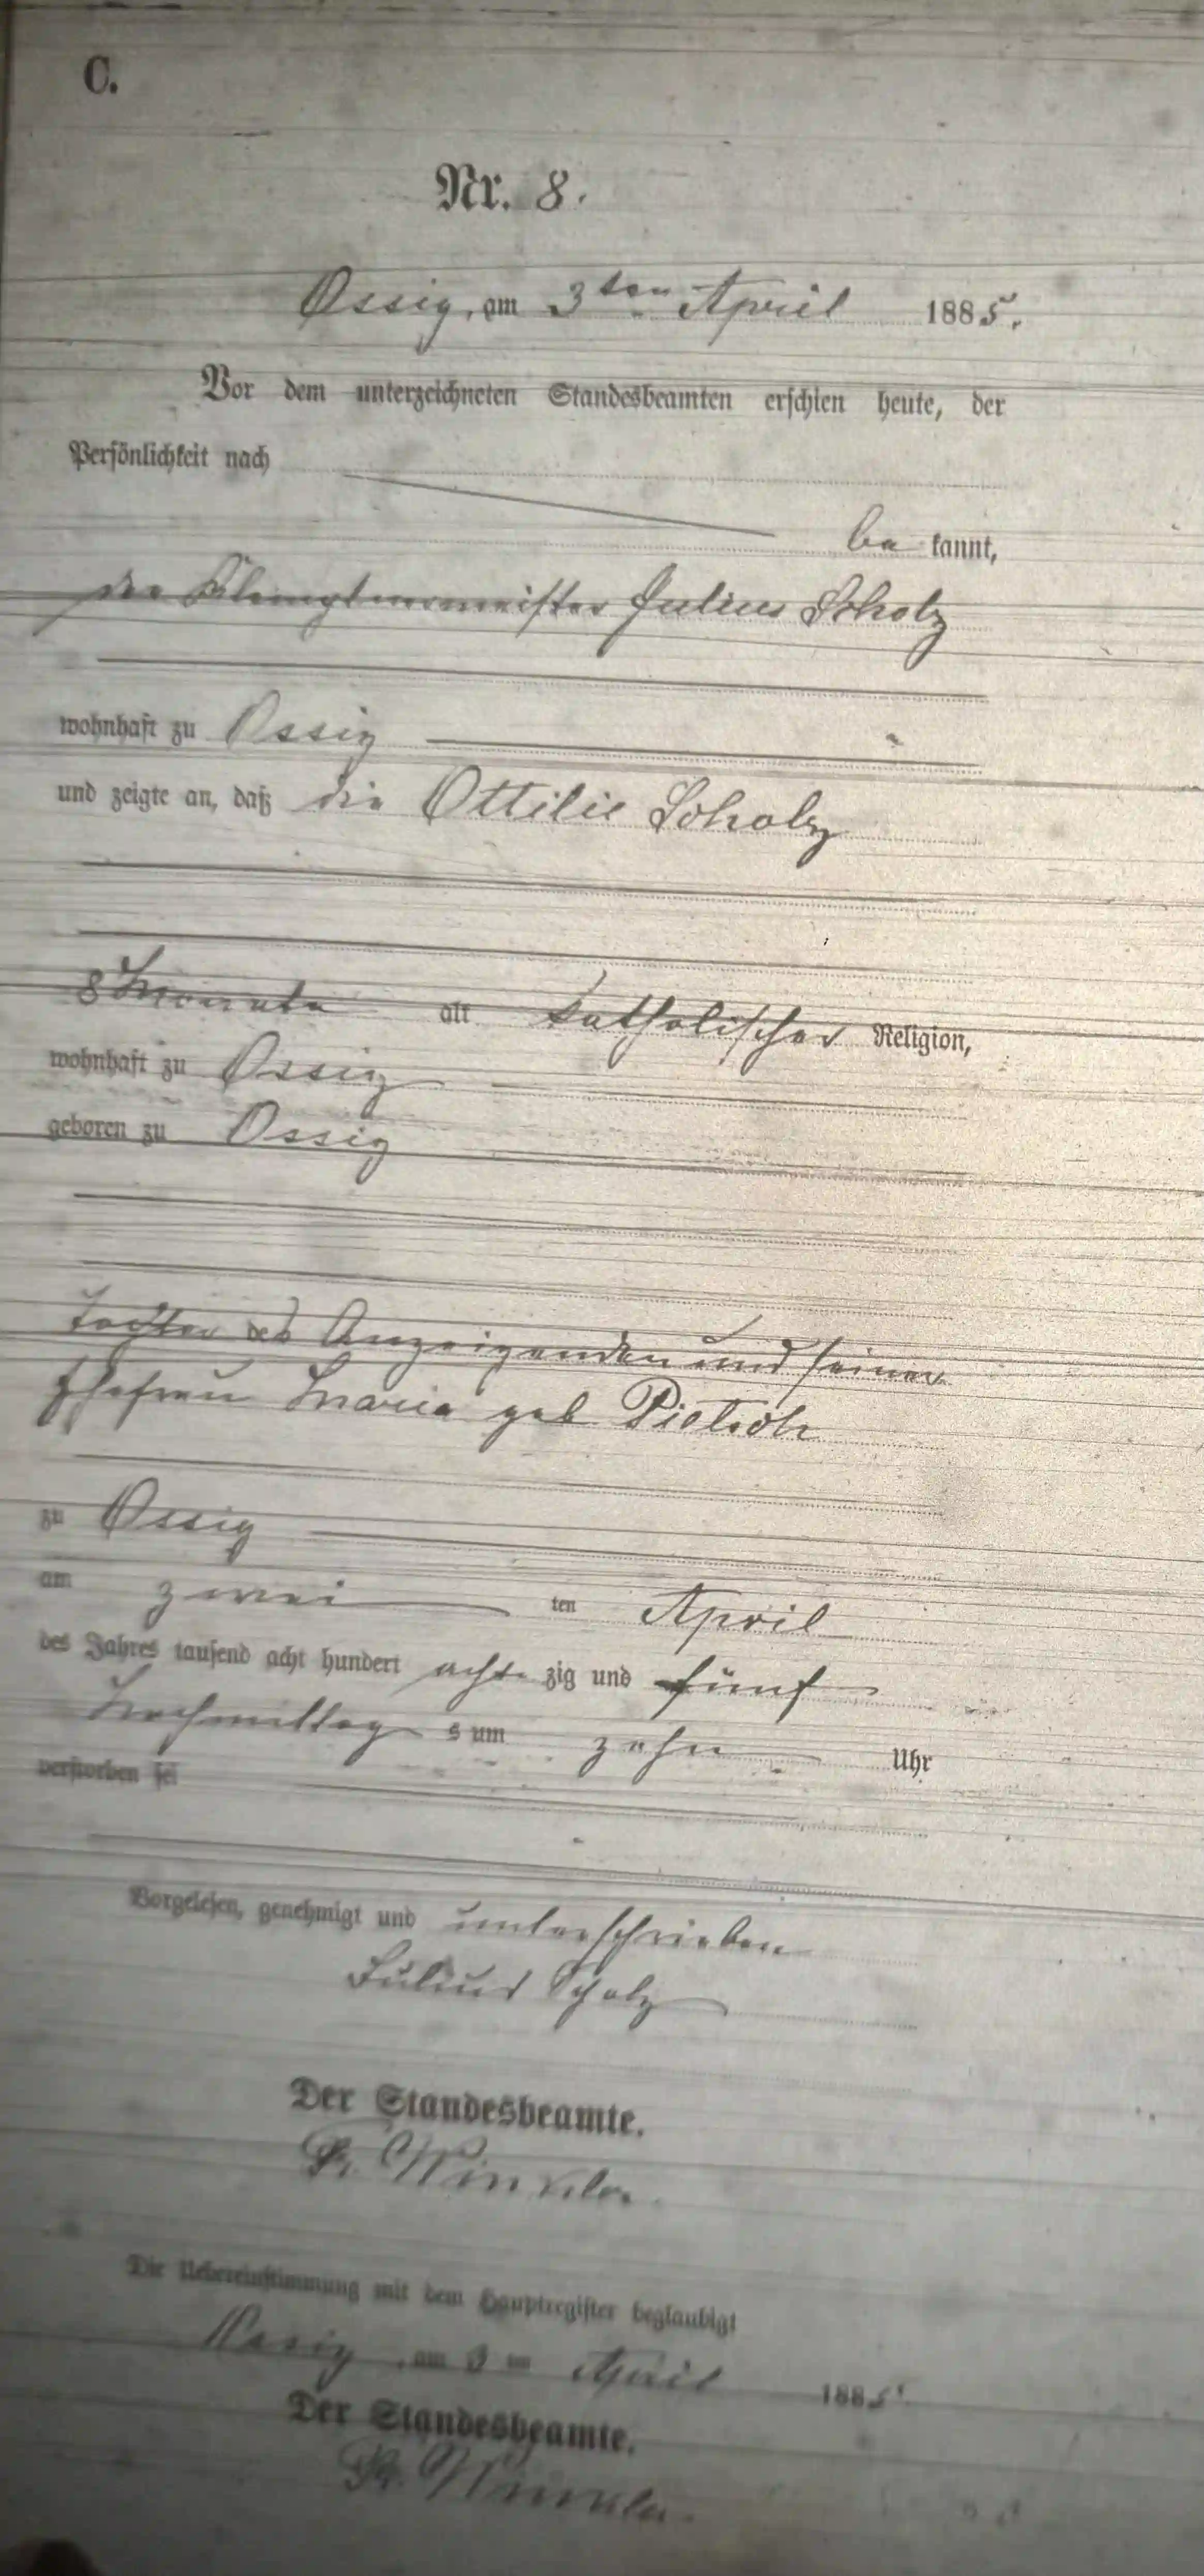 C.
Nr. 8.
Ossig, am 3ten April 1885.
Vor dem unterzeichneten Standesbeamten erschien heute, der
Persönlichkeit nach
be kannt,
der Klemptnermeister Julius Scholz
wohnhaft zu Ossig
und zeigte an, daß die Ottilie Scholz
8 Monate alt katholischer Religion,
wohnhaft zu Ossig
geboren zu Ossig
Tochter des Anzeigenden und seiner
Ehefrau Maria geb Pietsch
zu Ossig
am zwei ten April
des Jahres tausend acht hundert acht zig und fünf
Nachmittag s um zehn Uhr
verstorben sei
Vorgelesen, genehmigt und unterschrieben
Julius Scholz
Der Standesbeamte.
Winkler.
Die Uebereinstimmung mit dem Hauptregister beglaubigt
Ossig, am 3 ten April 1885.
Der Standesbeamte.
Winkler.